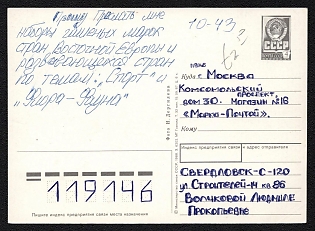 Прошу прислать мне
наборы гашёных марок
стран Восточной Европы и
развевающихся стран
по темам: „Спорт" и
„Флора-Фауна"
10-43
СССР
Куда г. Москва
Комсомольский
проспект,
дом 30. магазин №18
«Марка-Почтой».
Кому
Индекс предприятия связи и адрес отправителя
Свердловск-С-120
ул. Строителей-Н кв 86
Волчковой Людмиле
Прокопьевне
119146
Пишите индекс предприятия связи места назначения
Фото И. Дергилева